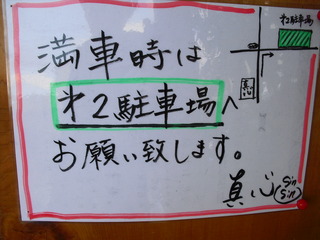 満車時は
㐧2駐車場へ
お願い致します。
真心
Sin
Sin
㐧2駐車場
真心